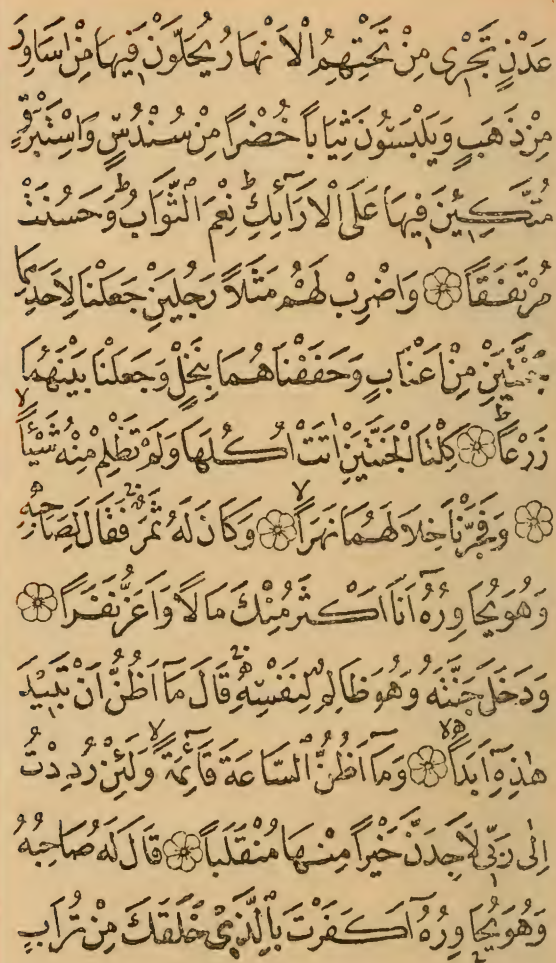 عَدْنٍ تَجْرٖى مِنْ تَحْتِهِمُ الْاَنْهَارُ يُحَلَّوْنَ فٖيهَا مِنْ اَسَاوِرَ
مِنْ ذَهَبٍ وَيَلْبَسُونَ ثِيَاباً خُضْراً مِنْ سُنْدُسٍ وَاِسْتَبْرَقٍ
مُتَّكِـٖٔينَ فٖيهَا عَلَى الْاَرَٓائِكِ ط نِعْمَ الثَّوَابُ ط وَحَسُنَتْ
مُرْتَفَقاً ۝ وَاضْرِبْ لَهُمْ مَثَلاً رَجُلَيْنِ جَعَلْنَا لِاَحَدِهِمَا
جَنَّتَيْنِ مِنْ اَعْنَابٍ وَحَفَفْنَاهُمَا بِنَخْلٍ وَجَعَلْنَا بَيْنَهُمَا
زَرْعاً ط ۝ كِلْتَا الْجَنَّتَيْنِ اٰتَتْ اُكُلَهَا وَلَمْ تَظْلِمْ مِنْهُ شَيْـٔاً لا
۝ وَفَجَّرْنَا خِلَالَهُمَا نَهَراً لا ۝ وَكَانَ لَهُ ثَمَرٌ فَقَالَ لِصَاحِبِهٖ
وَهُوَ يُحَاوِرُهُٓ اَنَا۬ اَكْثَرُ مِنْكَ مَالاً وَاَعَزُّ نَفَراً ۝
وَدَخَلَ جَنَّتَهُ وَهُوَ ظَالِمٌ لِنَفْسِهٖ قَالَ مَٓا اَظُنُّ اَنْ تَبٖيدَ
هٰذِهٖٓ اَبَداً لا ۝ وَمَٓا اَظُنُّ السَّاعَةَ قَٓائِمَةً لا وَلَئِنْ رُدِدْتُ
اِلٰى رَبّٖى لَاَجِدَنَّ خَيْراً مِنْهَا مُنْقَلَباً ۝ قَالَ لَهُ صَاحِبُهُ
وَهُوَ يُحَاوِرُهُٓ اَكَفَرْتَ بِالَّذٖى خَلَقَكَ مِنْ تُرَابٍ